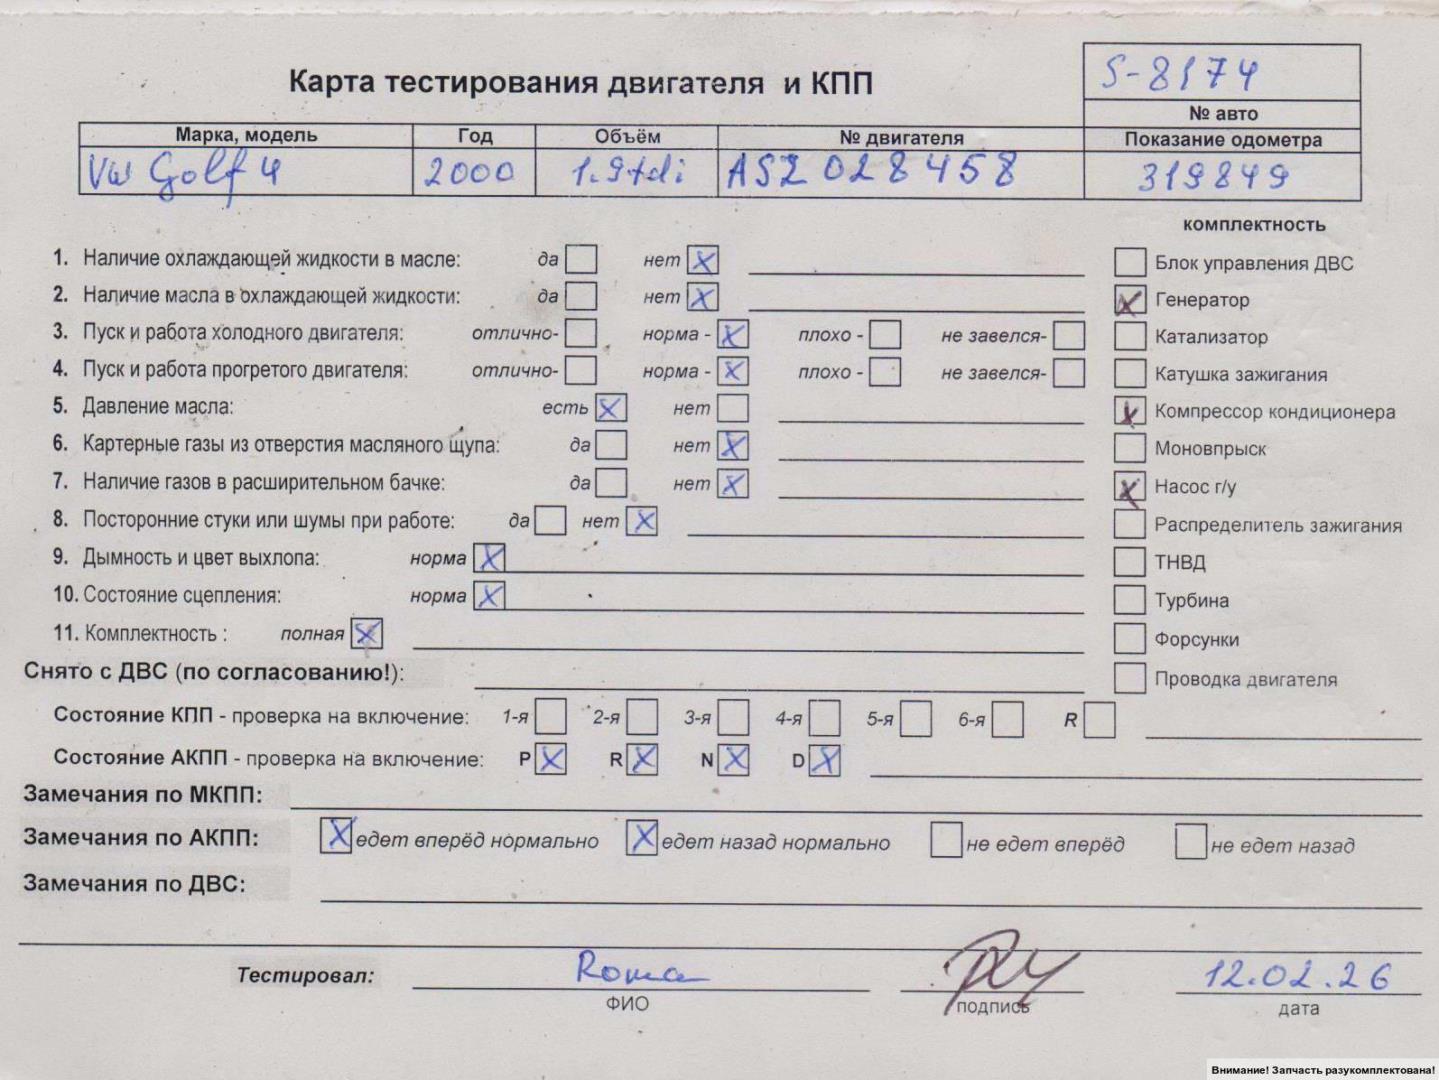 S-8174
Карта тестирования двигателя и КПП
№ авто
Марка, модель Год Объём № двигателя Показание одометра
VW Golf 4 2000 1.9tdi ASZ 028458 319849
комплектность
1. Наличие охлаждающей жидкости в масле: да нет X Блок управления ДВС
2. Наличие масла в охлаждающей жидкости: да нет X X Генератор
3. Пуск и работа холодного двигателя: отлично- норма - X плохо - не завелся- Катализатор
4. Пуск и работа прогретого двигателя: отлично- норма - X плохо - не завелся- Катушка зажигания
5. Давление масла: есть X нет X Компрессор кондиционера
6. Картерные газы из отверстия масляного щупа: да нет X Моновпрыск
7. Наличие газов в расширительном бачке: да нет X X Насос г/у
8. Посторонние стуки или шумы при работе: да нет X Распределитель зажигания
9. Дымность и цвет выхлопа: норма X ТНВД
10. Состояние сцепления: норма X Турбина
11. Комплектность : полная X Форсунки
Снято с ДВС (по согласованию!): Проводка двигателя
Состояние КПП - проверка на включение: 1-я 2-я 3-я 4-я 5-я 6-я R
Состояние АКПП - проверка на включение: P X R X N X D X
Замечания по МКПП:
Замечания по АКПП: X едет вперёд нормально X едет назад нормально не едет вперёд не едет назад
Замечания по ДВС:
Тестировал: Roma 12.02.26
ФИО подпись дата
Внимание! Запчасть разукомплектована!